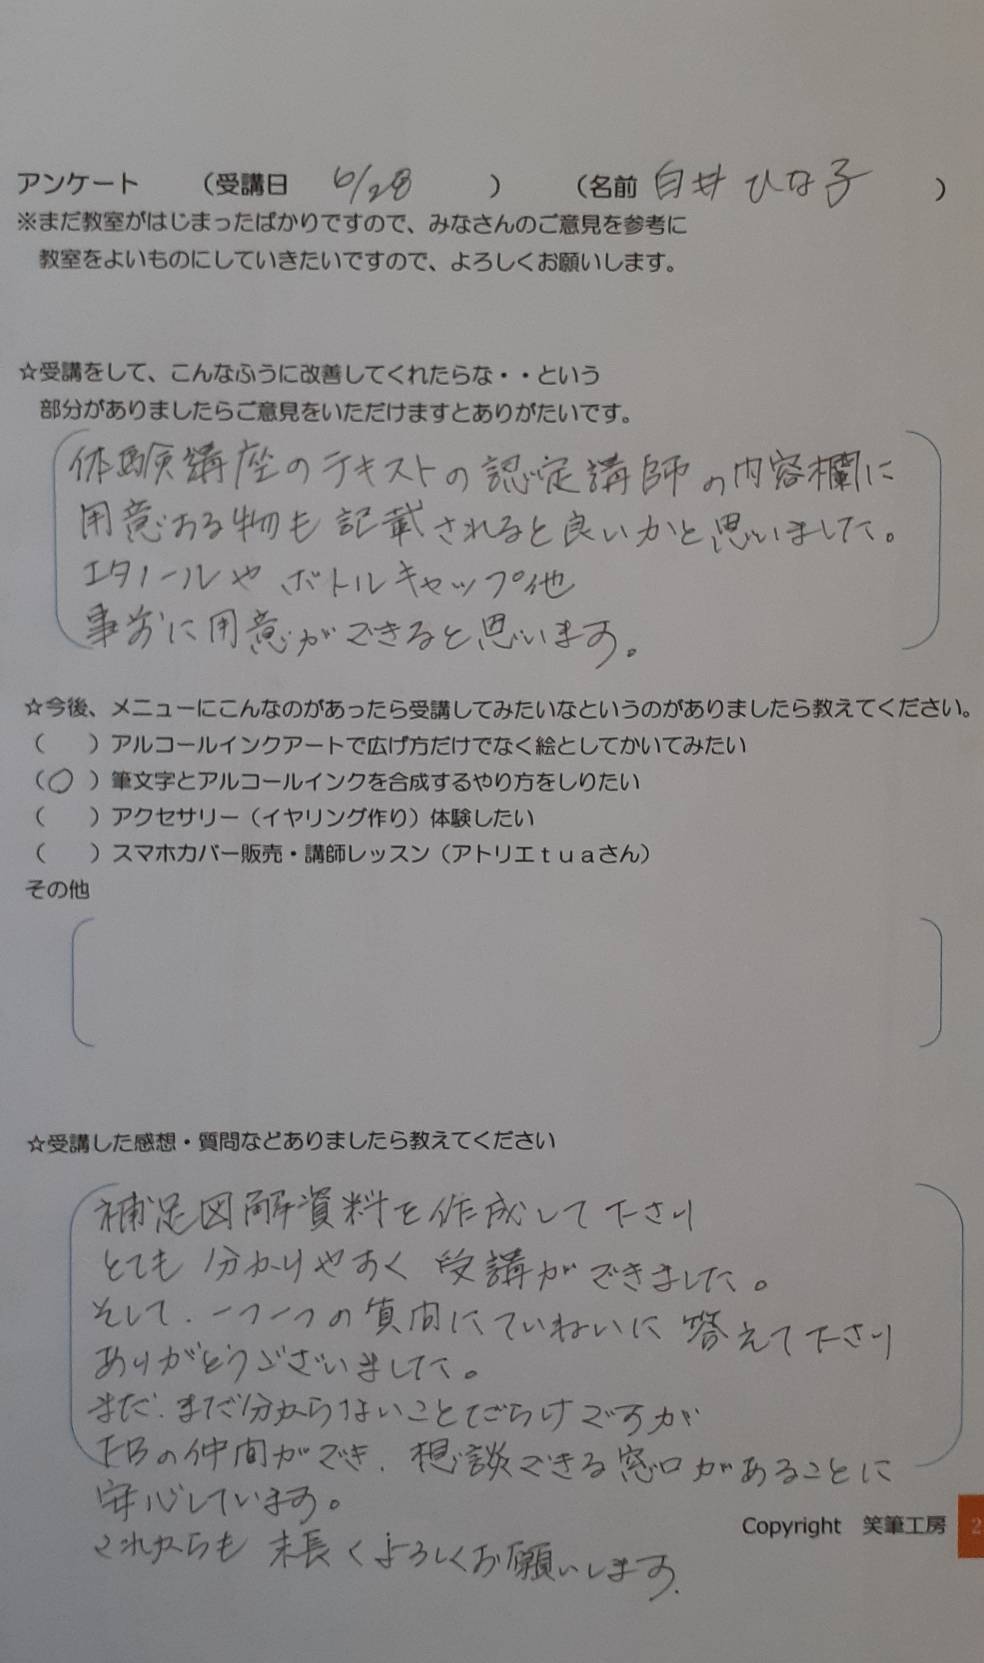 アンケート （受講日 6/28 ） （名前 白井 ひな子 ）
※まだ教室がはじまったばかりですので、みなさんのご意見を参考に
教室をよいものにしていきたいですので、よろしくお願いします。
☆受講をして、こんなふうに改善してくれたらな・・という
部分がありましたらご意見をいただけますとありがたいです。
体験講座のテキストの認定講師の内容欄に
用意する物も記載されると良いかと思いました。
エタノールやボトルキャップ他
事前に用意ができると思います。
☆今後、メニューにこんなのがあったら受講してみたいなというのがありましたら教えてください。
（ ）アルコールインクアートで広げ方だけでなく絵としてかいてみたい
（○）筆文字とアルコールインクを合成するやり方をしりたい
（ ）アクセサリー（イヤリング作り）体験したい
（ ）スマホカバー販売・講師レッスン（アトリエｔｕａさん）
その他
☆受講した感想・質問などありましたら教えてください
補足図解資料を作成して下さり
とても分かりやすく受講ができました。
そして、一つ一つの質問にていねいに答えて下さり
ありがとうございました。
まだ、まだ分からないことだらけですが
FBの仲間ができ、想談できる窓口があることに
安心しています。
これからも末長くよろしくお願いします。
Copyright 笑筆工房 2